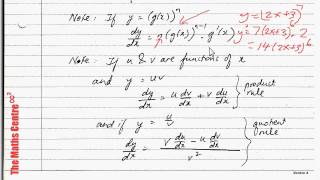 Note: If y = (g(x))^n
dy/dx = n(g(x))^(n-1) · g'(x)
y = (2x+3)^7
y' = 7(2x+3)^6 . 2
= 14(2x+3)^6
Note: If u & v are functions of x
and y = uv
dy/dx = u dv/dx + v du/dx
product rule
and if y = u/v
dy/dx = (v du/dx - u dv/dx) / v²
quotent rule
The Maths Centre